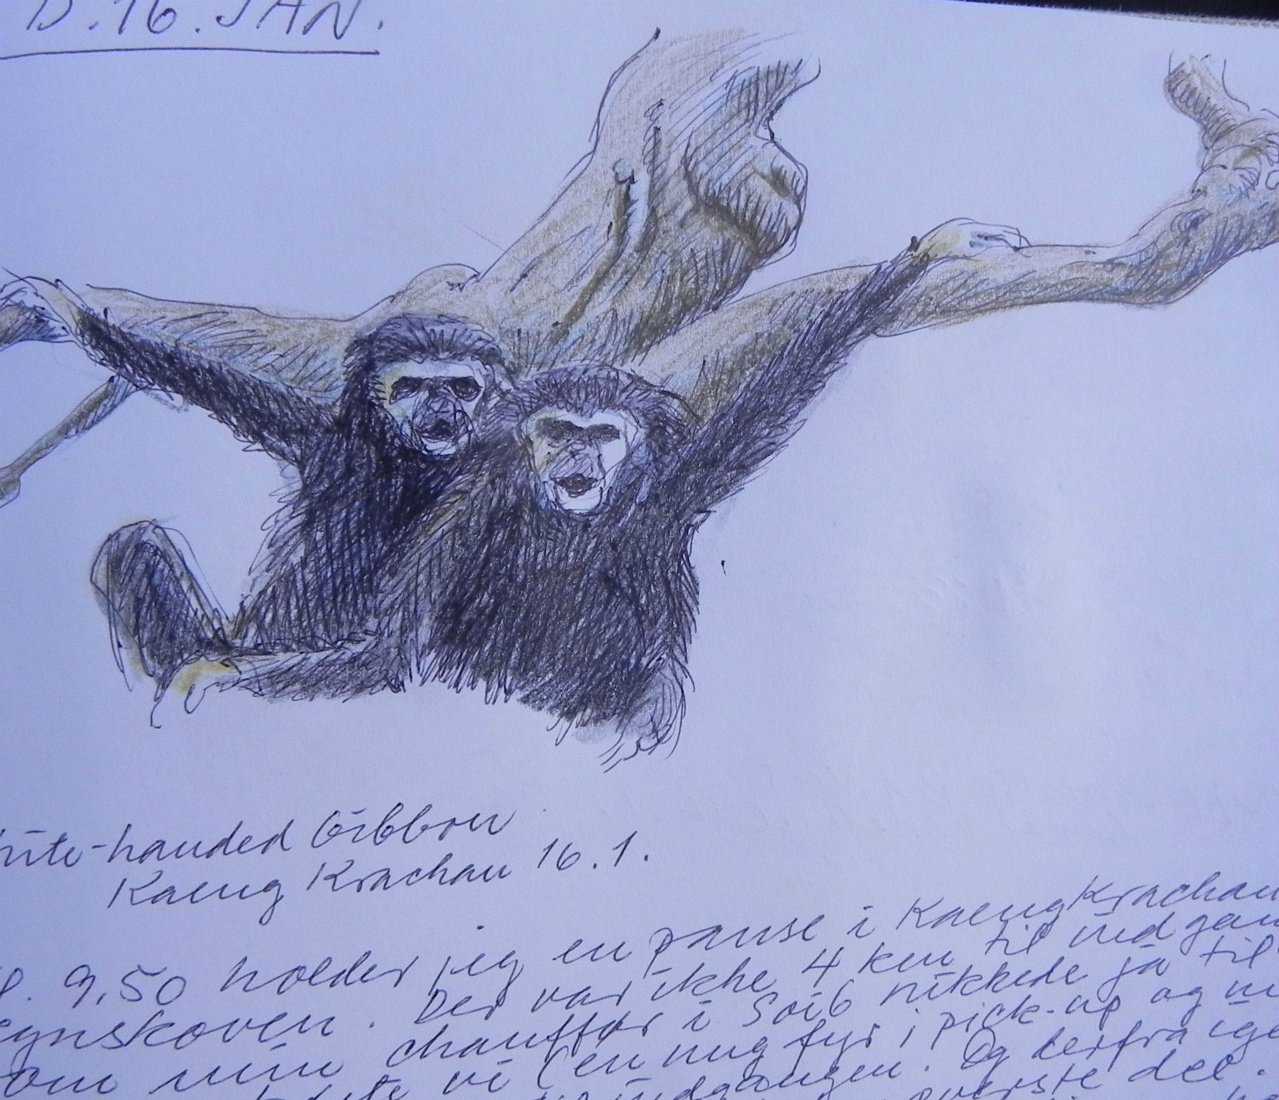 D. 16. JAN.
hite-handed Gibbon
Kaeng Krachan 16.1.
9,50 holder jeg en pause i Kaeng Krachan
ynskoven. Der var ikke 4 km til indgan
om min chauffør i Soi 6 nikkede ja til
vi (en ung fyr i pick-up og
indgangen. Og derfra ige
øverste del.